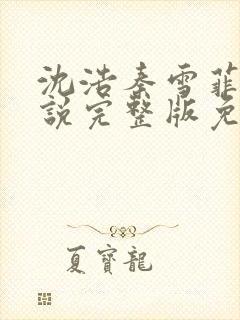 沈浩秦雪菲
說完整版免
夏寶龍